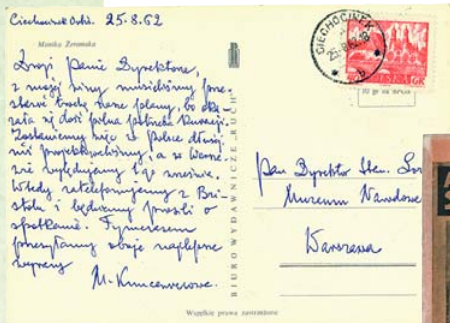 Ciechocinek Orbis. 25.8.62
Monika Żeromska
Drogi Panie Dyrektorze,
z mojej winy musieliśmy prze-
stawić trochę nasze plany, bo oka-
zała się dość pilna potrzeba kuracji.
Zostaniemy więc w Polsce dłużej
niż projektowaliśmy, a w Warsza-
wie
Wtedy zatelefonujemy z Bri-
stolu i będziemy prosili o
spotkanie. Tymczasem
przesyłamy oboje najlepsze
wyrazy
M.
BIURO WYDAWNICZE „RUCH”
CIECHOCINEK
25.8.62-18
POLSKA GR
Pan Dyrektor Stan.
Muzeum Narodowe
Warszawa
Wszelkie prawa zastrzeżone